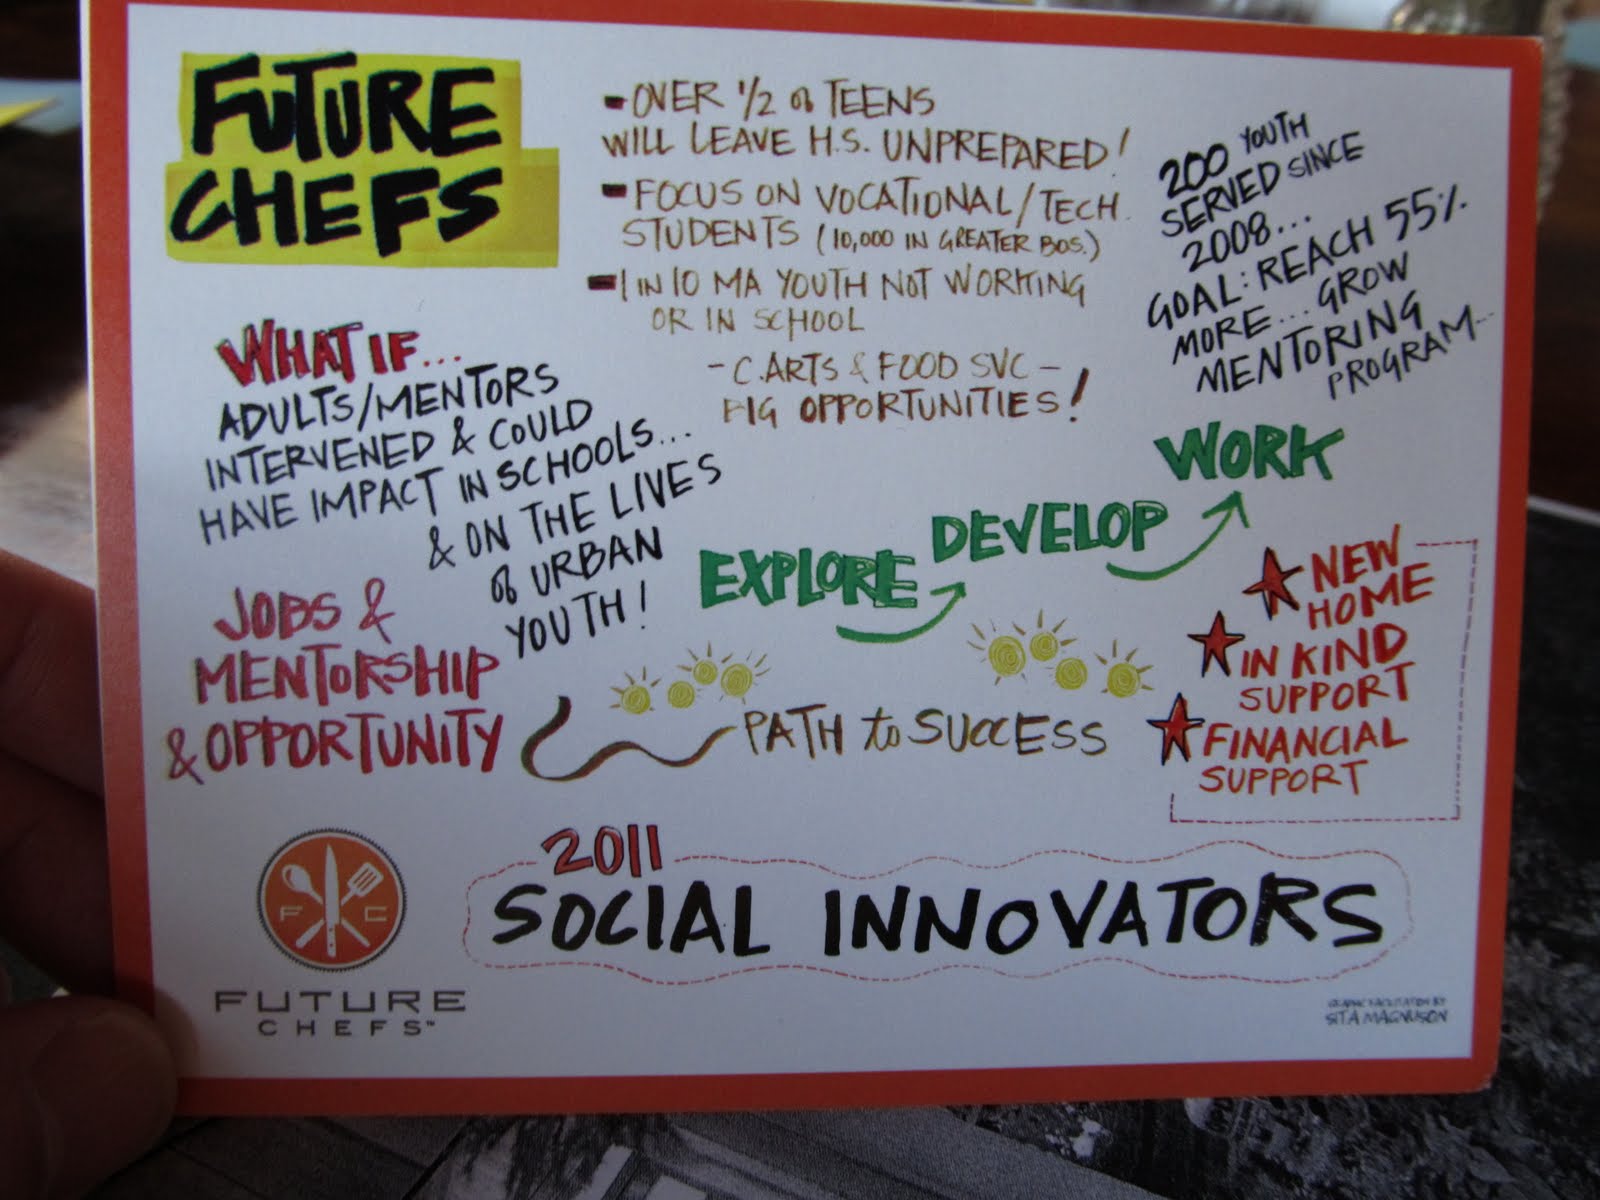 FUTURE
CHEFS
- OVER 1/2 of TEENS
WILL LEAVE H.S. UNPREPARED!
- FOCUS ON VOCATIONAL/TECH.
STUDENTS (10,000 IN GREATER BOS.)
- 1 IN 10 MA YOUTH NOT WORKING
OR IN SCHOOL
- C.ARTS & FOOD SVC -
BIG OPPORTUNITIES!
200 YOUTH
SERVED SINCE
2008...
GOAL: REACH 55%
MORE... GROW
MENTORING
PROGRAM...
WHAT IF...
ADULTS/MENTORS
INTERVENED & COULD
HAVE IMPACT IN SCHOOLS...
& ON THE LIVES
of URBAN
YOUTH!
JOBS &
MENTORSHIP
& OPPORTUNITY
EXPLORE
DEVELOP
WORK
PATH to SUCCESS
NEW
HOME
IN KIND
SUPPORT
FINANCIAL
SUPPORT
2011
SOCIAL INNOVATORS
F C
FUTURE
CHEFS™
GRAPHIC FACILITATION BY
SITA MAGNUSON